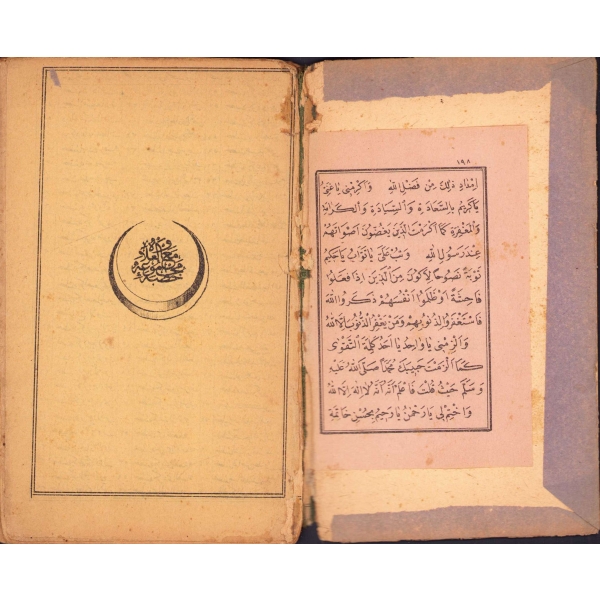 ١٩٨
امداد ذلك من فضل الله وأكرمني يا غني
يا كريم بالسعادة والسيادة والكرامة
والمغفرة كما أكرمت الذين يغضون أصواتهم
عند رسول الله وتب علي يا تواب يا حكيم
توبة نصوحا لأكون من الذين إذا فعلوا
فاحشة أو ظلموا أنفسهم ذكروا الله
فاستغفروا لذنوبهم ومن يغفر الذنوب إلا الله
والزمني يا واحد يا أحد كلمة التقوى
كما ألزمت حبيبك محمدا صلى الله عليه
وسلم حيث قلت فاعلم أنه لا إله إلا الله
واختم لي يا رحمن يا رحيم بحسن خاتمة